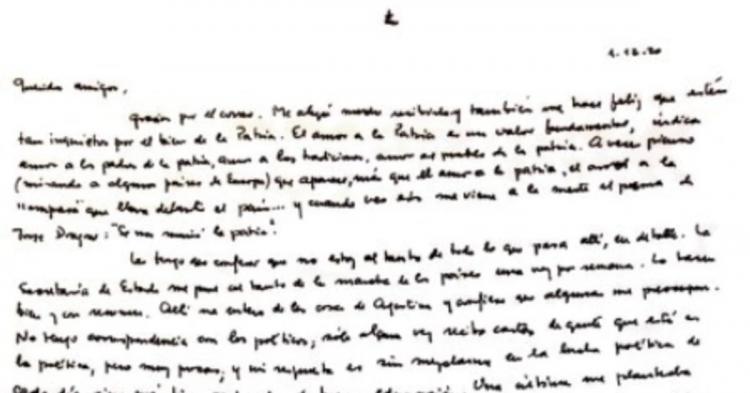 1.12.20
Queridos amigos,
gracias por el correo. Me alegró mucho recibirlo y también me hace feliz que estén
tan inquietos por el bien de la Patria. El amor a la Patria es un valor fundamental, indica
amor a los padres de la patria, amor a las tradiciones, amor al pueblo de la patria. A veces pienso
(mirando a algunos países de Europa) que aparece, más que el amor a la patria, el amor a la
"empresa" que lleva delante el país... y cuando veo esto me viene a la mente el poema de
Jorge Dragon: "Se nos murió la patria".
Les tengo que confesar que no estoy al tanto de todo lo que pasa allí, en detalle. La
Secretaría de Estado me pone al tanto de la marcha de los países una vez por semana. Lo hacen
bien y con resumen. Allí me entero de las cosas de Argentina y confieso que algunas me preocupan.
No tengo correspondencia con los políticos; sólo alguna vez recibo cartas de gente que está en
la política, pero muy pocas, y mi respuesta es sin mezclarme en la lucha política de
cada día Una última me planteaba